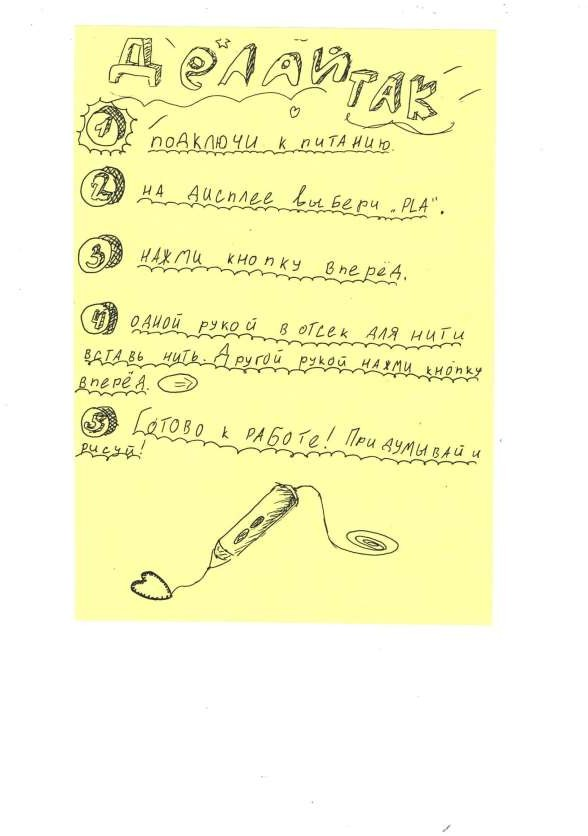 Делай так
1 подключи к питанию.
2 на дисплее выбери „PLA“.
3 нажми кнопку вперёд.
4 одной рукой в отсек для нити
вставь нить. Другой рукой нажми кнопку
вперёд. ⇒
5 Готово к работе! Придумывай и
рисуй!